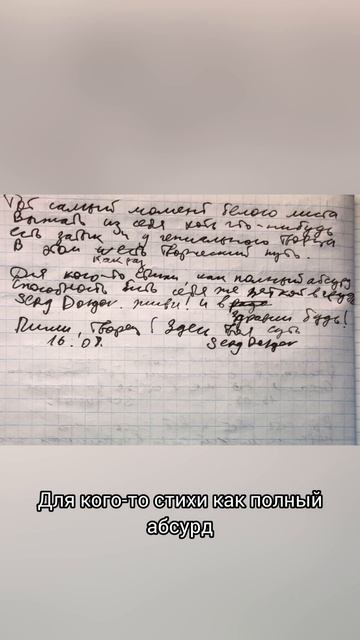 Тот самый момент белого листа
Выжать из себя хоть что-нибудь
Есть задачи у гениального творца
В этом и есть творческий путь.
как раз
Для кого-то стихи как полный абсурд
Способность бить себя же
Serg Dorgor. живи! и в
здравии будь!
Пиши, творец! Здесь твоя суть
16.08. Serg Dorgor
Для кого-то стихи как полный
абсурд